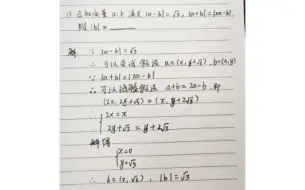 13 已知向量 a、b 满足 |a-b|=√3, |a+b|=|2a-b|,
则 |b| = ______
解 ∵ |a-b|=√3
∴ 可以尝试假设 a=(x, y+√3), b=(x,y)
∵ |a+b|=|2a-b|
∴ 可以试验假设 a+b=2a-b, 即
(2x, 2y+√3)=(x, y+2√3)
∴ {2x=x
2y+√3=y+2√3
解得
{x=0
y=√3
∴ b=(0,√3), |b|=√3